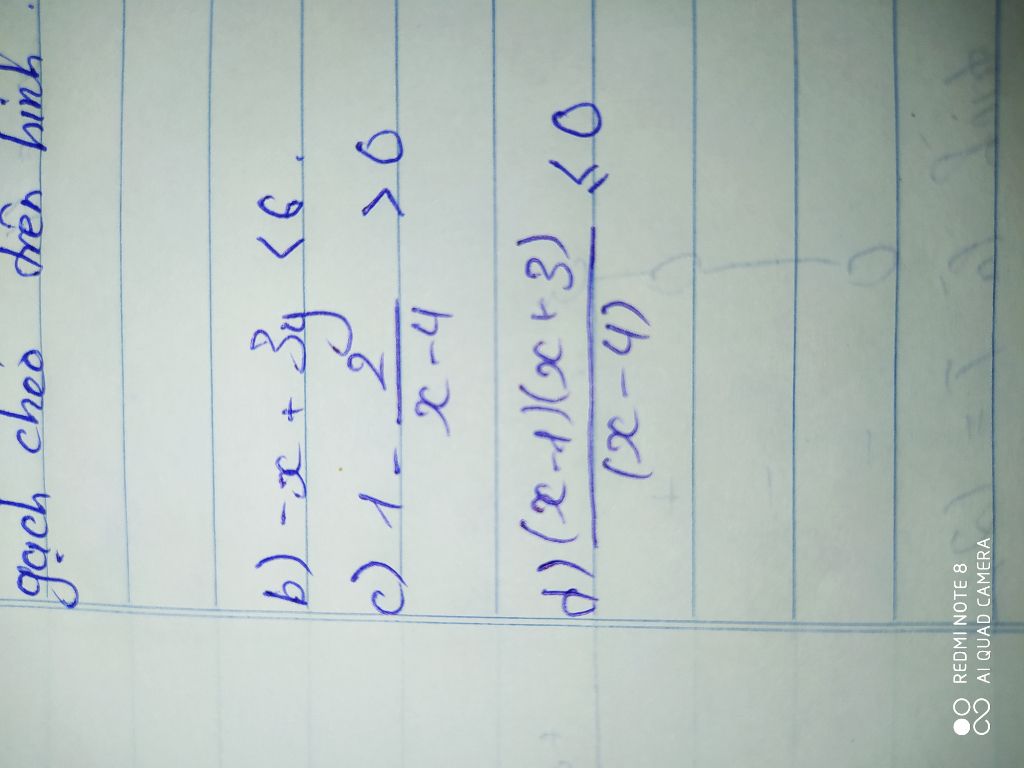 gạch chéo trên hình.
b) -x + 3y < 6.
c) 1 - \frac{2}{x-4} > 0
d) \frac{(x-1)(x+3)}{(x-4)} ≤ 0
REDMI NOTE 8
AI QUAD CAMERA